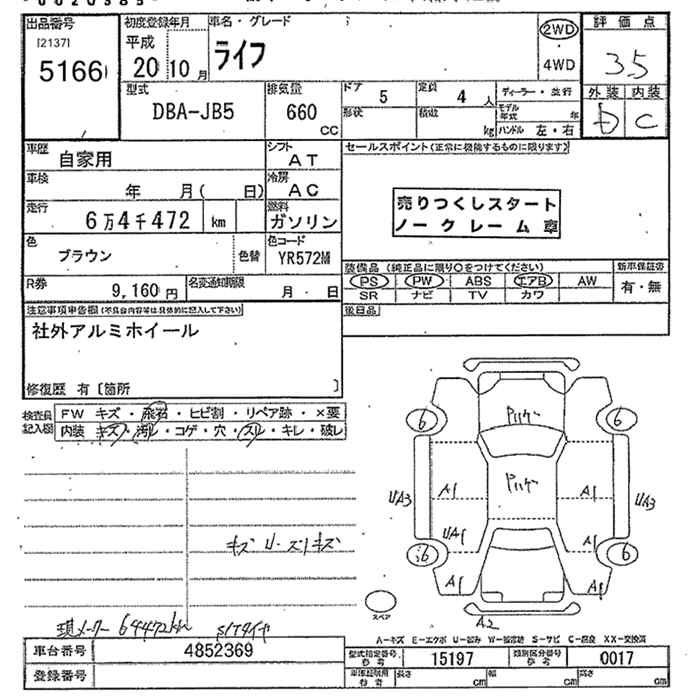 出品番号 初度登録年月 車名・グレード 評価点
[2137] 平成 ライフ 2WD 3.5
5166 20 10月 4WD 外装 内装
型式 排気量 ドア 5 定員 4人 ディーラー・並行 D C
DBA-JB5 660 CC 形状 積載 kg モデル年式 年
ハンドル 左・右
車歴 自家用 シフト AT セールスポイント(正常に機能するものに限ります)
車検 年 月( 日) 冷房 AC
走行 6万4千472 km 燃料 ガソリン 売りつくしスタート
ノークレーム 車
色 ブラウン 色替 色コード YR572M
装備品(純正品に限り○をつけてください) 新車保証書
R券 9,160円 名変通知期限 月 日 PS PW ABS エアB AW 有・無
SR ナビ TV カワ
注意事項申告欄(不具合内容等は具体的に記入して下さい) 後日品
社外アルミホイール
修復歴 有〔箇所 〕
検査員記入欄 FW キズ・飛石・ヒビ割・リペア跡・×要
内装 キズ・汚レ・コゲ・穴・スレ・キレ・破レ
6 6
A1 A1
UA3 UA3
UA1 A1
6 6
A1 A1
A2
スペア
キズ U-ズリキズ
現メーター 64472km
A-キズ E-エクボ U-凹み S-サビ C-腐食 XX-交換済
車台番号 4852369 型式指定番号 参考 15197 類別区分番号 参考 0017
登録番号 車庫証明用 参考 長さ cm 幅 cm 高さ cm